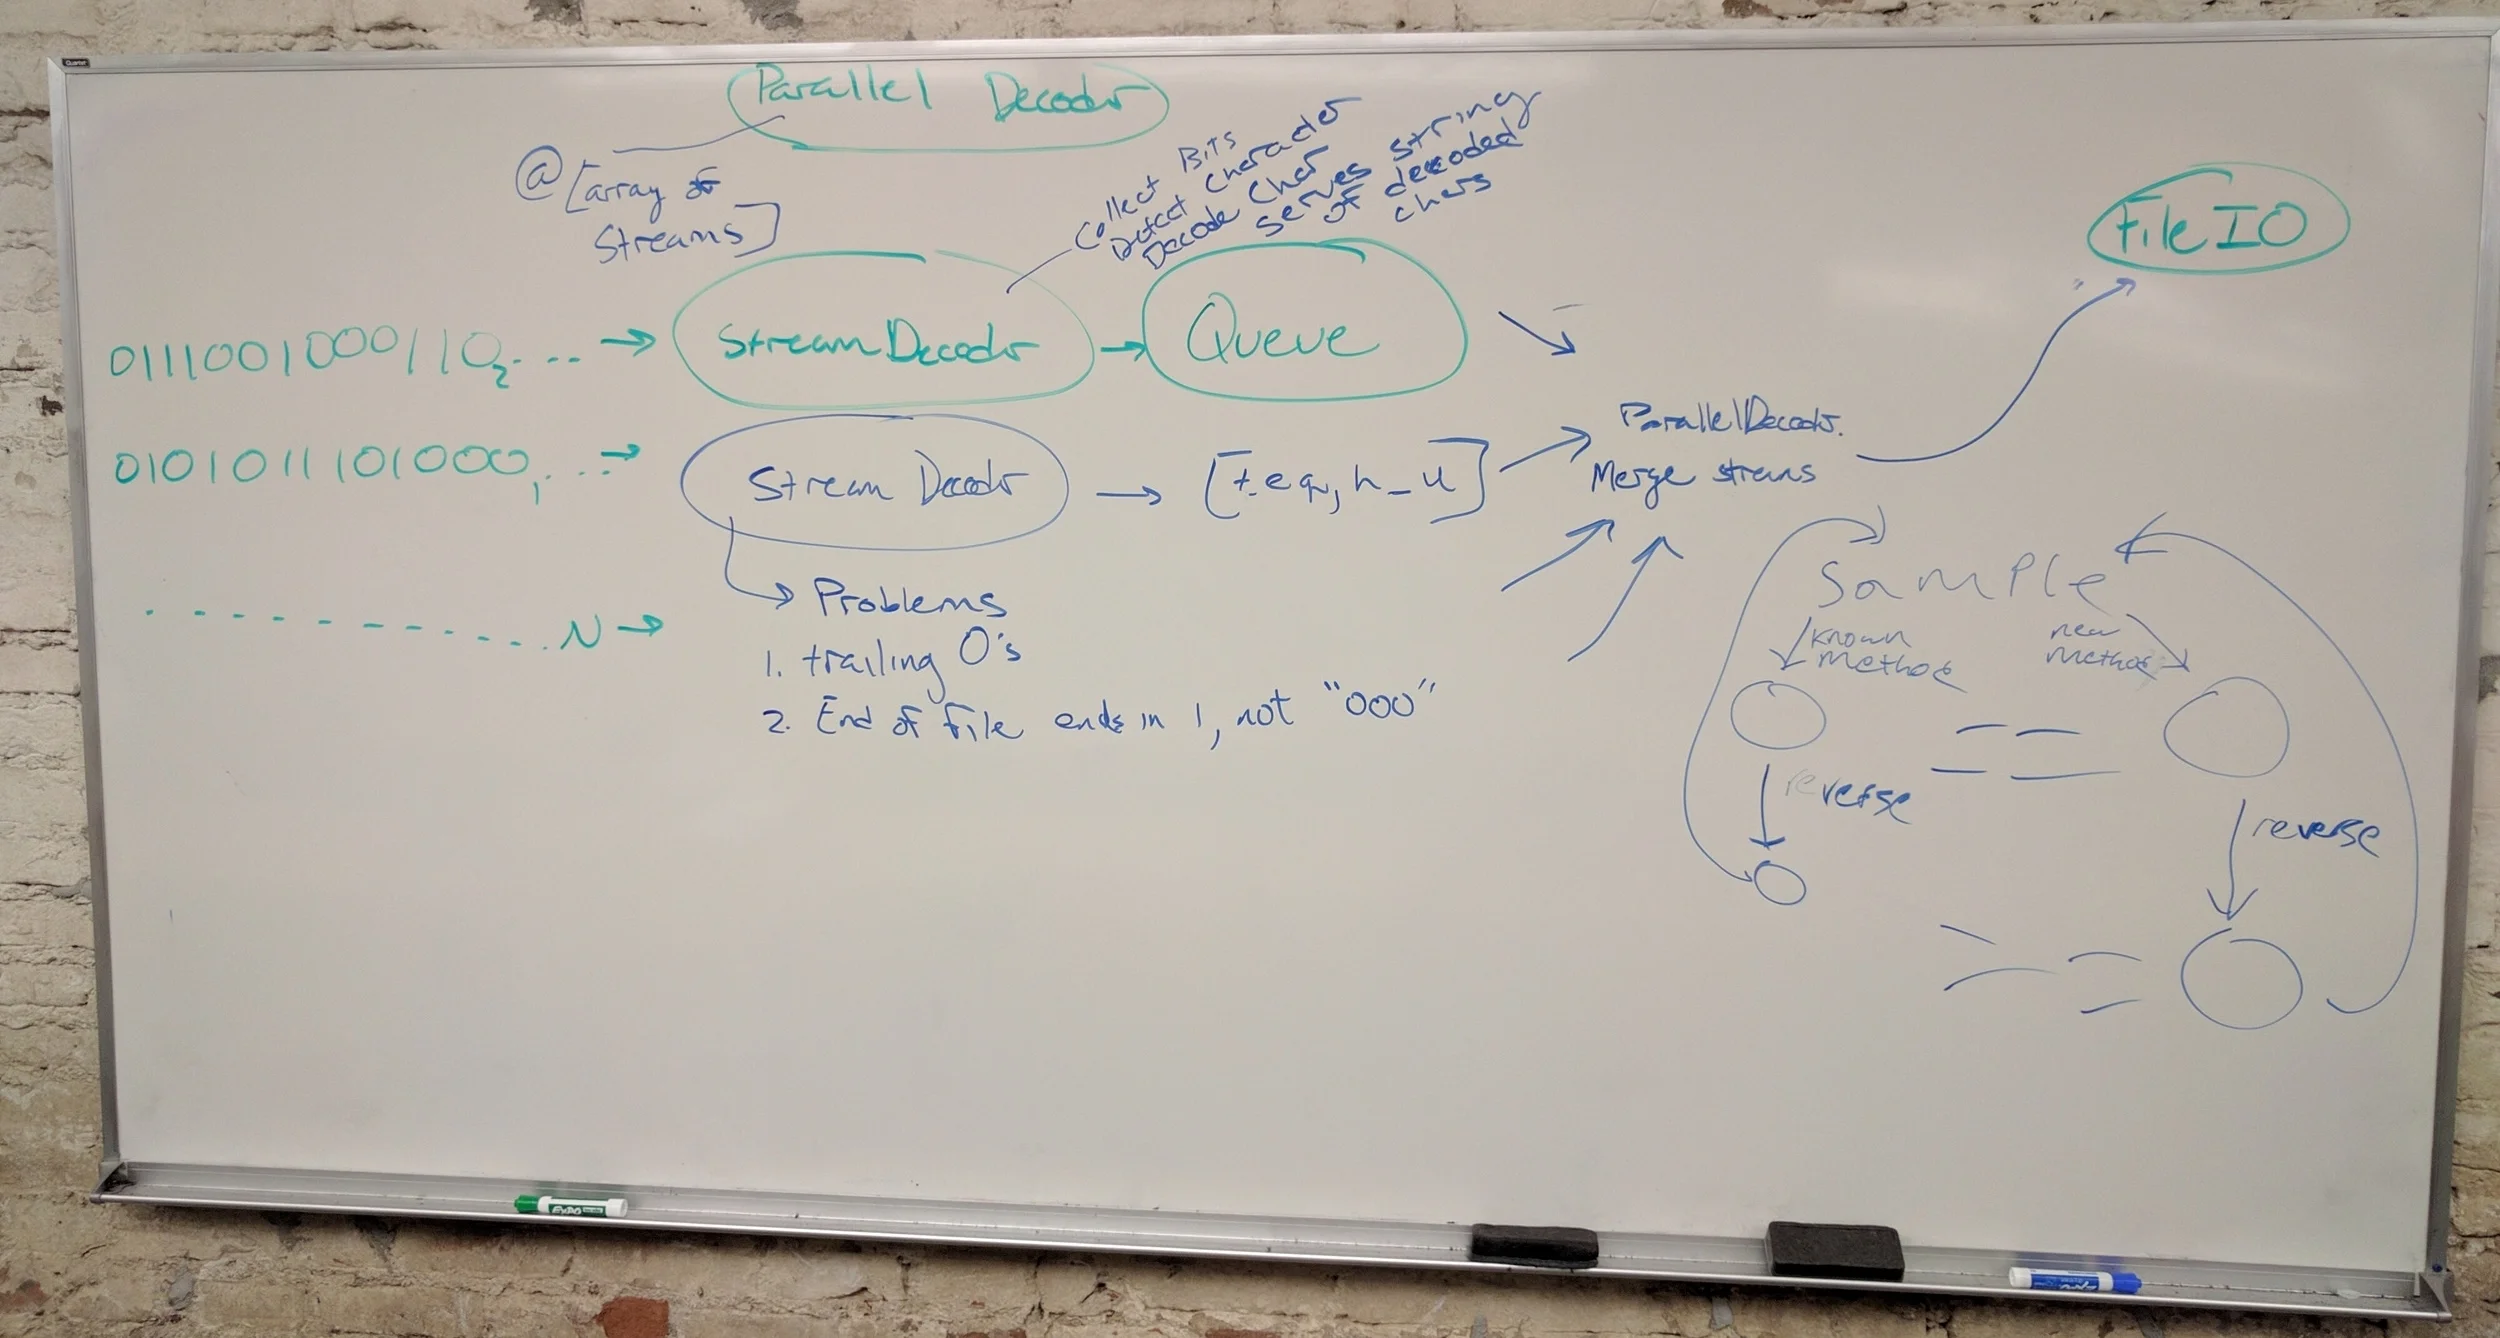 Parallel Decoder
@[array of
Streams]
Collect Bits
Detect Character
Decode Char
serves string
of decoded
chars
File IO
0111001000110₂... →
StreamDecoder →
Queue
0101011101000, ... →
Stream Decoder →
ParallelDecoder.
Merge streams
..........N →
Problems
1. trailing 0's
2. End of file ends in 1, not "000"
Sample
known
method
new
method
reverse
reverse
EXPO
Quartet